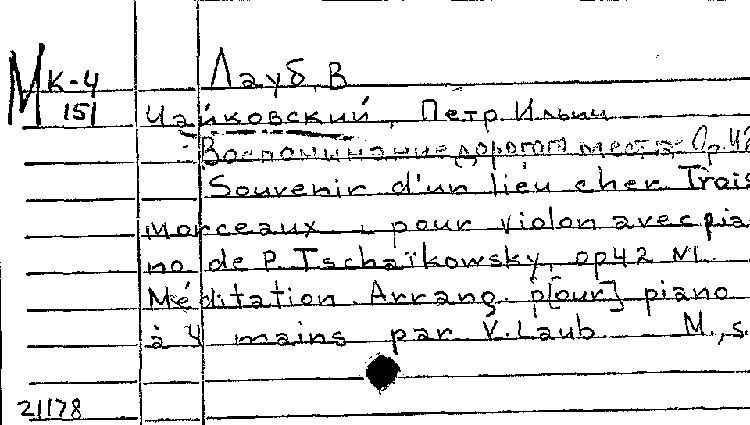 М к-4 Лауб, В
151
Чайковский, Петр Ильич
Воспоминание дорогого места Op 42
Souvenir d'un lieu cher Trois
morceaux pour violon avec pia
no de P. Tschaïkowsky, op 42 N1.
Méditation. Arrang. p[our] piano
à 4 mains par V. Laub M., s.
21178